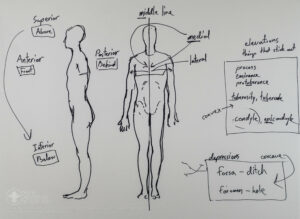 Superior
Above
Anterior
Front
Inferior
Below
Posterior
Behind
middle line
medial
lateral
elevations
things that stick out
process
eminence
protuberance
tuberosity, tubercle
condyle, epicondyle
convex
depressions
concave
fossa - ditch
foramen - hole